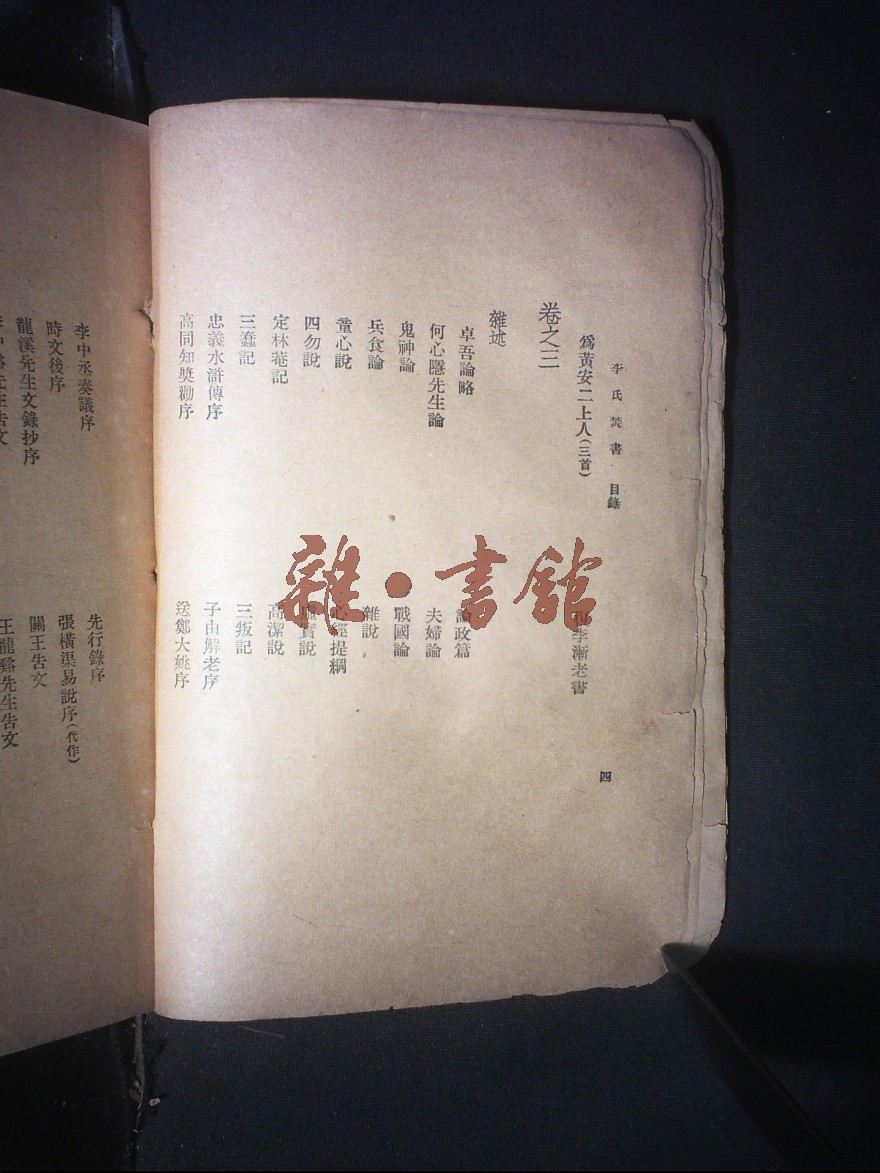 李氏焚書 目錄 四
爲黃安二上人(三首) 李漸老書
卷之三
雜述
卓吾論略 論政篇
何心隱先生論 夫婦論
鬼神論 戰國論
兵食論 雜說
童心說 心經提綱
四勿說 虛實說
定林菴記 高潔說
三蠢記 三叛記
忠義水滸傳序 子由解老序
高同知獎勸序 送鄭大姚序
李中丞奏議序 先行錄序
時文後序 張橫渠易說序(代作)
龍溪先生文錄抄序 關王告文
先生告文 王龍谿先生告文
雜·書館